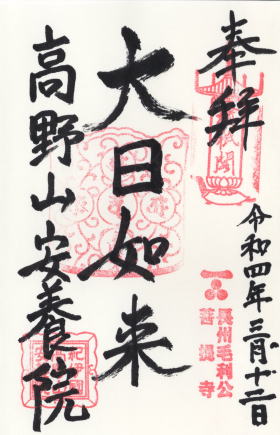 奉拝
令和四年三月十二日
長州毛利公
菩提寺
大日如来
高野山安養院